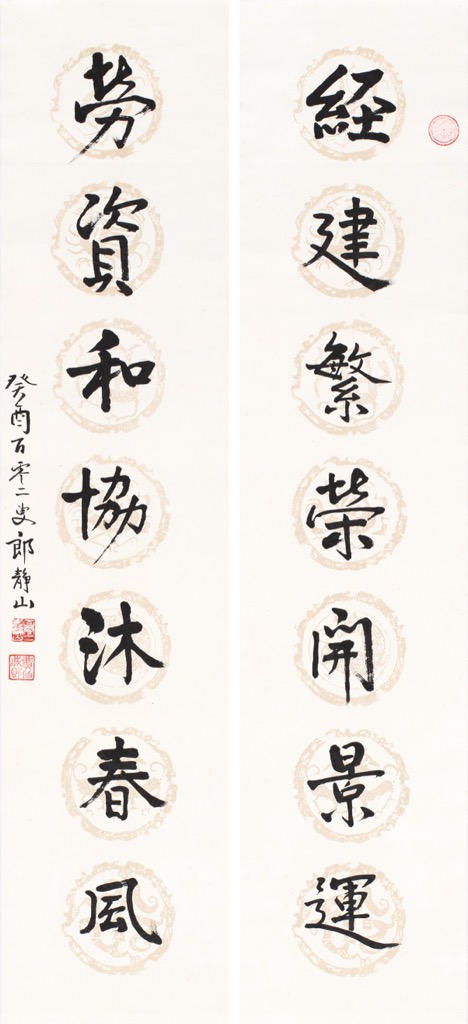 經建繁榮開景運
勞資和協沐春風
癸酉百零二叟郎靜山